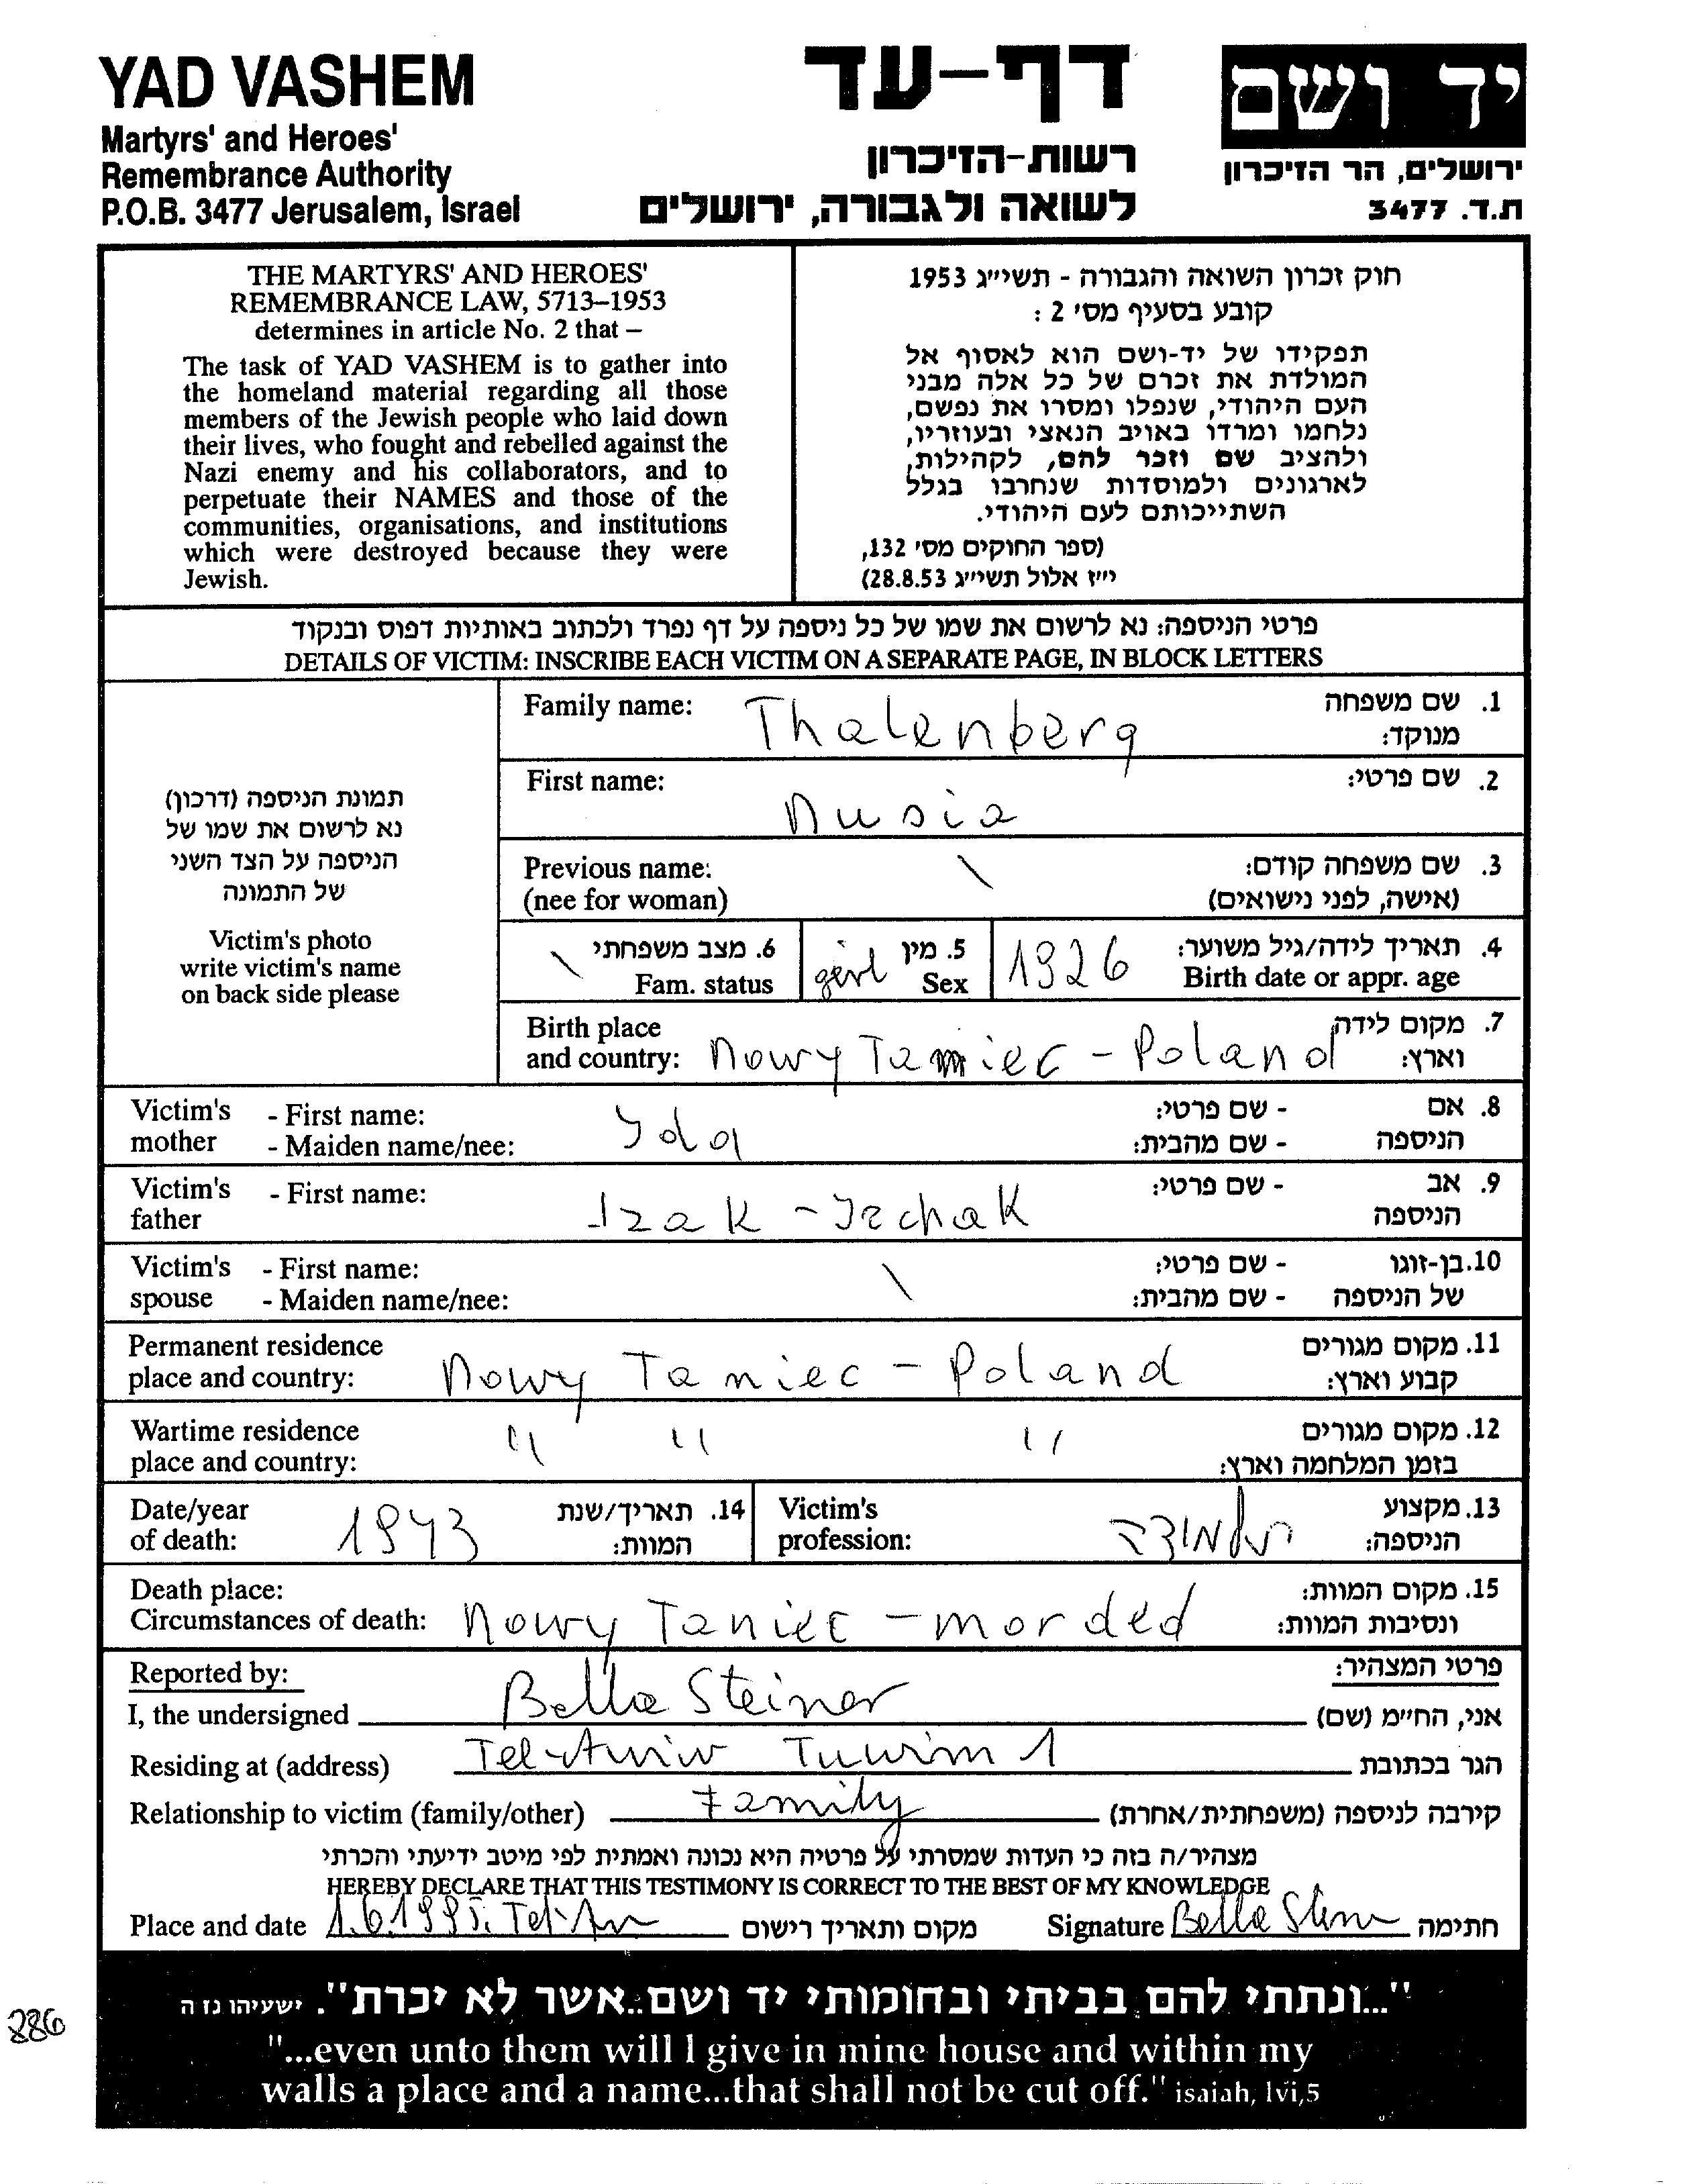 YAD VASHEM
Martyrs' and Heroes'
Remembrance Authority
P.O.B. 3477 Jerusalem, Israel
דף-עד
רשות-הזיכרון
לשואה ולגבורה, ירושלים
יד ושם
ירושלים, הר הזיכרון
ת.ד. 3477
THE MARTYRS' AND HEROES'
REMEMBRANCE LAW, 5713–1953
determines in article No. 2 that –
The task of YAD VASHEM is to gather into
the homeland material regarding all those
members of the Jewish people who laid down
their lives, who fought and rebelled against the
Nazi enemy and his collaborators, and to
perpetuate their NAMES and those of the
communities, organisations, and institutions
which were destroyed because they were
Jewish.
חוק זכרון השואה והגבורה - תשי״ג 1953
קובע בסעיף מס׳ 2 :
תפקידו של יד-ושם הוא לאסוף אל
המולדת את זכרם של כל אלה מבני
העם היהודי, שנפלו ומסרו את נפשם,
נלחמו ומרדו באויב הנאצי ובעוזריו,
ולהציב שם וזכר להם, לקהילות,
לארגונים ולמוסדות שנחרבו בגלל
השתייכותם לעם היהודי.
(ספר החוקים מס׳ 132,
י״ז אלול תשי״ג 28.8.53)
פרטי הניספה: נא לרשום את שמו של כל ניספה על דף נפרד ולכתוב באותיות דפוס ובנקוד
DETAILS OF VICTIM: INSCRIBE EACH VICTIM ON A SEPARATE PAGE, IN BLOCK LETTERS
תמונת הניספה (דרכון)
נא לרשום את שמו של
הניספה על הצד השני
של התמונה
Victim's photo
write victim's name
on back side please
Family name: Thalenberg 1. שם משפחה
מנוקד:
First name: Nusia 2. שם פרטי:
Previous name: \ 3. שם משפחה קודם:
(nee for woman) (אישה, לפני נישואים)
\ 6. מצב משפחתי girl 5. מין 1926 4. תאריך לידה/גיל משוער:
Fam. status Sex Birth date or appr. age
Birth place 7. מקום לידה
and country: Nowy Tamiec - Poland וארץ:
Victim's - First name: Ida - שם פרטי: 8. אם
mother - Maiden name/nee: - שם מהבית: הניספה
Victim's - First name: Izak - Izchak - שם פרטי: 9. אב
father הניספה
Victim's - First name: \ - שם פרטי: 10. בן-זוגו
spouse - Maiden name/nee: - שם מהבית: של הניספה
Permanent residence 11. מקום מגורים
place and country: Nowy Taniec - Poland קבוע וארץ:
Wartime residence " " " 12. מקום מגורים
place and country: בזמן המלחמה וארץ:
Date/year 1943 14. תאריך/שנת Victim's תלמידה 13. מקצוע
of death: המוות: profession: הניספה:
Death place: 15. מקום המוות:
Circumstances of death: Nowy Taniec - morded ונסיבות המוות:
Reported by: פרטי המצהיר:
I, the undersigned Bella Steiner אני, החי״מ (שם)
Residing at (address) Tel-Awiw Tuwim 1 הגר בכתובת
Relationship to victim (family/other) Family קירבה לניספה (משפחתית/אחרת)
מצהיר/ה בזה כי העדות שמסרתי על פרטיה היא נכונה ואמתית לפי מיטב ידיעתי והכרתי
HEREBY DECLARE THAT THIS TESTIMONY IS CORRECT TO THE BEST OF MY KNOWLEDGE
Place and date 1.6.1995. Tel-Aw מקום ותאריך רישום Signature Bella Stein חתימה
"...ונתתי להם בביתי ובחומותי יד ושם...אשר לא יכרת". ישעיהו נו ה
"...even unto them will I give in mine house and within my
walls a place and a name...that shall not be cut off." isaiah, lvi,5
286